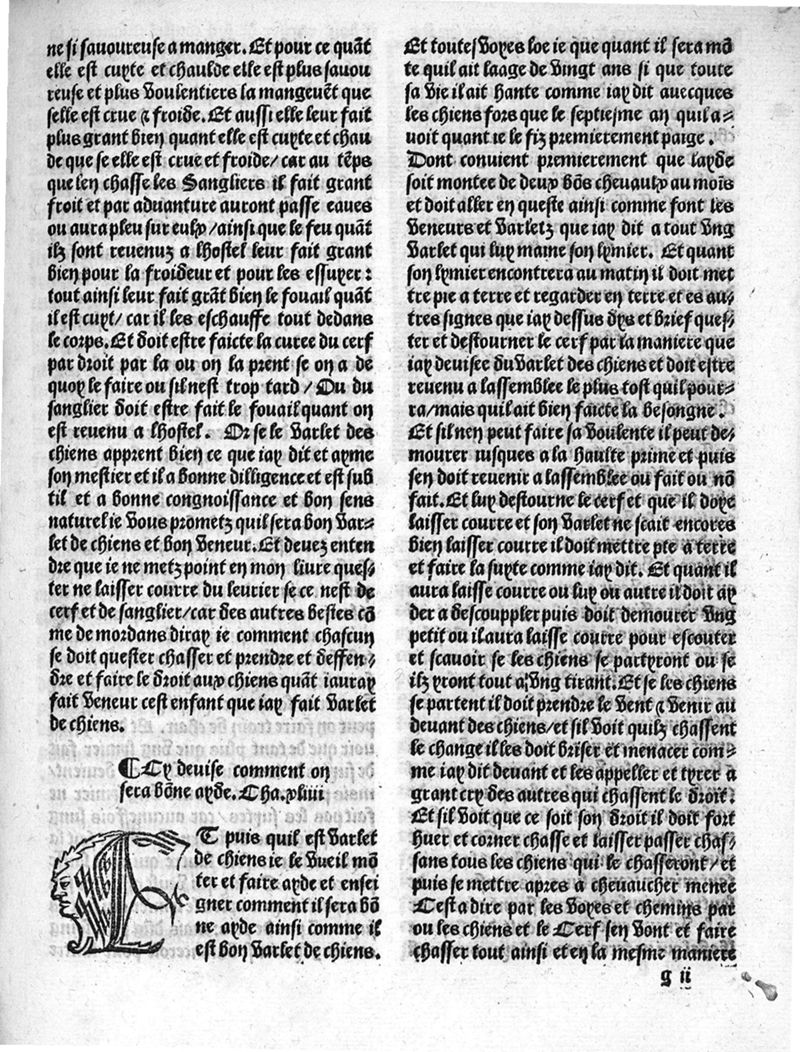 ne si sauoureuse a manger. Et pour ce quãt
elle est cuyte et chaulde elle est plus sauou
reuse et plus voulentiers la mangeuẽt que
selle est crue ⁊ froide. Et aussi elle leur fait
plus grant bien quant elle est cuyte et chau
de que se elle est crue et froide/ car au tẽps
que len chasse les Sangliers il fait grant
froit et par aduanture auront passe eaues
ou aura pleu sur eulx/ ainsi que le feu quãt
ilz sont reuenuz a lhostel leur fait grant
bien pour la froideur et pour les essuyer:
tout ainsi leur fait grãt bien le fouail quãt
il est cuyt/ car il les eschauffe tout dedans
le corps. Et doit estre faicte la curee du cerf
par droit par la ou on la prent se on a de
quoy le faire ou sil nest trop tard/ Ou du
sanglier doit estre fait le fouail quant on
est reuenu a lhostel. Or se le varlet des
chiens apprent bien ce que iay dit et ayme
son mestier et il a bonne dilligence et est sub
til et a bonne congnoissance et bon sens
naturel ie vous prometz quil sera bon var⸗
let de chiens et bon veneur. Et deuez enten
dre que ie ne metz point en mon liure ques⸗
ter ne laisser courre du leurier se ce nest de
cerf et de sanglier/ car des autres bestes cõ
me de mordans diray ie comment chascun
se doit quester chasser et prendre et deffen⸗
dre et faire le droit aux chiens quãt iauray
fait veneur cest enfant que iay fait varlet
de chiens.
¶ Cy deuise comment on
sera bõne ayde. Cha.xliiii
ET puis quil est varlet
de chiens ie le vueil mõ
ter et faire ayde et ensei
gner comment il sera bõ
ne ayde ainsi comme il
est bon varlet de chiens.
Et toutes voyes loe ie que quant il sera mõ
te quil ait laage de vingt ans si que toute
sa vie il ait hante comme iay dit auecques
les chiens fors que le septiesme an quil a⸗
uoit quant ie le fiz premierement paige.
Dont conuient premierement que layde
soit montee de deux bõs cheuaulx au moĩs
et doit aller en queste ainsi comme font les
veneurs et varletz que iay dit a tout vng
varlet qui luy maine son lymier. Et quant
son lymier encontrera au matin il doit met
tre pie a terre et regarder en terre et es au⸗
tres signes que iay dessus dys et brief ques⸗
ter et destourner le cerf par la maniere que
iay deuisee du varlet des chiens et doit estre
reuenu a lassemblee le plus tost quil pour⸗
ra/ mais quil ait bien faicte la besongne.
Et sil nen peut faire sa voulente il peut de⸗
mourer iusques a la haulte prime et puis
sen doit reuenir a lassemblee ou fait ou nõ
fait. Et luy destourne le cerf et que il doye
laisser courre et son varlet ne scait encores
bien laisser courre il doit mettre pie a terre
et faire la suyte comme iay dit. Et quant il
aura laisse courre ou luy ou autre il doit ay
der a descoupler puis doit demourer vng
petit ou il aura laisse courre pour escouter
et scauoir se les chiens se partyront ou se
ilz yront tout a vng tirant. Et se les chiens
se partent il doit prendre le vent ⁊ venir au
deuant des chiens/ et sil voit quilz chassent
le change il les doit briser et menacer com⸗
me iay dit deuant et les appeller et tyrer a
grant cry des autres qui chassent le droit.
Et sil voit que ce soit son droit il doit fort
huer et corner chasse et laisser passer chas⸗
sans tous les chiens qui le chasseront/ et
puis se mettre apres a cheuaucher menee
Cest a dire par les voyes et chemins par
ou les chiens et le Cerf sen vont et faire
chasser tout ainsi et en la mesme maniere
g ii